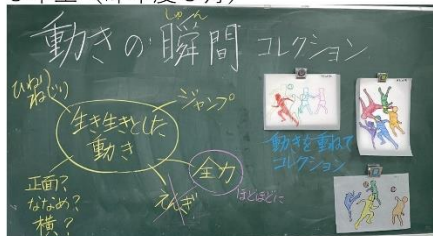 しゅん
動きの瞬間コレクション
ひねり
ねじり
ジャンプ
生き生きとした
動き
全力
ほどほどに
えんぎ
正面?
ななめ?
横?
動きを重ねて
コレクション